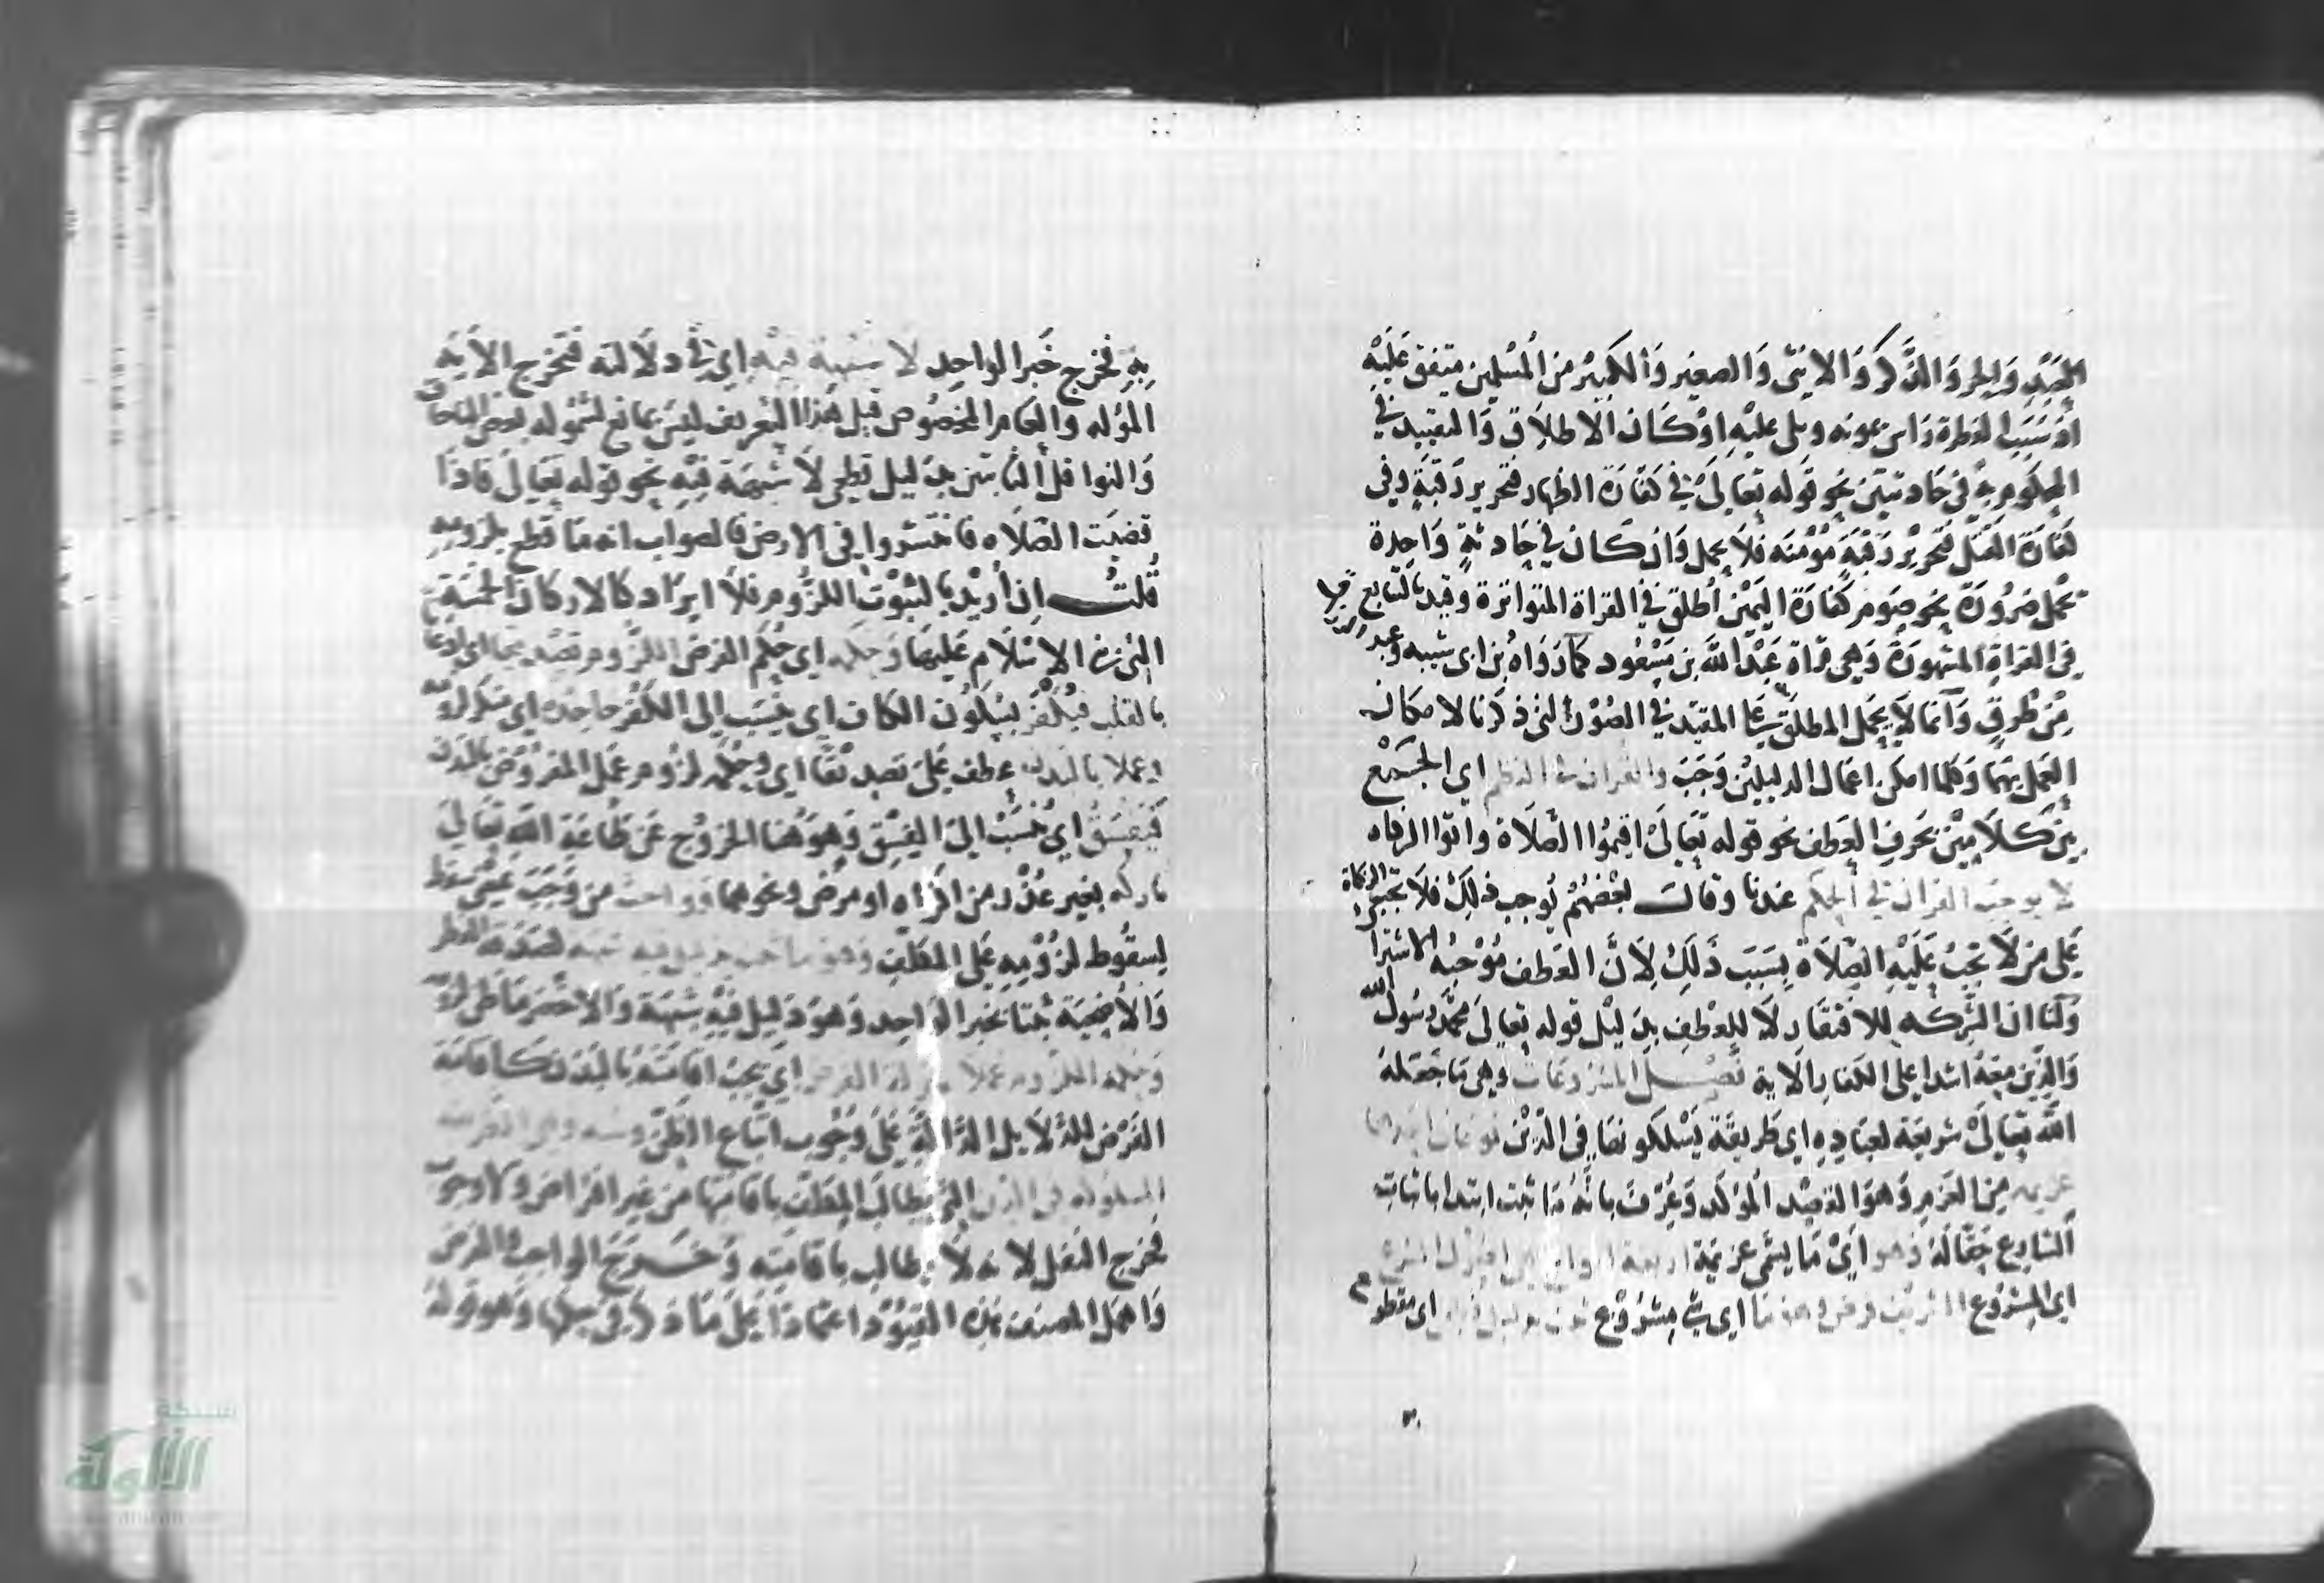 العبد والحر والذكر والانثى والصغير والكبير من المسلمين متفق عليه
اذ سبب الفطرة راس يمونه ويلى عليه او كان الاطلاق والتقييد في
المحكوم به في حادثتين نحو قوله تعالى في كفارة الظهار فتحرير رقبة وفي
كفارة القتل فتحرير رقبة مؤمنة فلا يحمل وان كان في حادثة واحدة
يحمل ضرورة نحو صوم كفارة اليمين أطلق في القراة المتواترة وقيد بالتتابع
في القراة المشهورة وهي قراة عبد الله بن مسعود كما رواه بن ابى شيبه وعبد الرزاق
من طرق وانما لا يحمل المطلق على المقيد في الصور التى ذكرنا لامكان
العمل بهما وكلما امكن اعمال الدليلين وجب والقران في النظم اى الجمع
بين كلامين بحرف العطف نحو قوله تعالى اقيموا الصلاة واتوا الزكاه
لا يوجب القران في الحكم عندنا وقال بعضهم يوجب ذلك فلا تجب الزكاة
على من لا تجب عليه الصلاة بسبب ذلك لان العطف موجبه الاشتراك
ولنا ان الشركه للافتقار لا للعطف بدليل قوله تعالى محمد رسول الله
والذين معه اشدا على الكفار الاية فصل المشروعات وهي ما جعله
الله تعالى شريعة لعباده اى طريقة يسلكونها في الدين نوعان احدهما
عزيمه من العزم وهو القصد المؤكد وعرف بانه ما ثبت ابتدا باثبات
الشارع حقا له وهو اى ما يسمى عزيمة اربعة انواع
اى المشروع فرض وهو ما اى شي مشروع ثبت بدليل اى مقطوع
به فخرج خبر الواحد لا شبهة فيه اى في دلالته فتخرج الاية
المؤله والعام المخصوص قيل هذا التعريف ليس بمانع لشموله بعض المباحات
والنوافل الثابتين بدليل قطعي لا شبهة فيه نحو قوله تعالى فاذا
قضيت الصلاه فانتشروا في الارض فالصواب انه ما قطع بلزومه
قلت ان أريد بالثبوت اللزوم فلا ايراد كالاركان الخمسة
التى بنى الاسلام عليها وحكمه اى حكم الفرض اللزوم تصديقا اى اذعانا
بالقلب فيكفر بسكون الكاف اى ينسب الى الكفر جاحده اى منكر لزومه
وعملا بالبدن عطف على تصديقا اى وحكمه لزوم عمل المفروض بالبدن
فيفسق اى ينسب الى الفسق وهو هنا الخروج عن طاعة الله تعالى
تاركه بغير عذر من اكراه او مرض ونحوهما وواجب من وجب بمعنى سقط
لسقوط لزومه على المكلف وهو ما ثبت بدليل فيه شبهة كصدقة الفطر
والأضحية ثبتا بخبر الواحد وهو دليل فيه شبهة والاخصر ما ظن لزومه
وحكمه اللزوم عملا بمنزلة الفرض اى يجب اقامته بالبدن كاقامة
الفرض للدلايل الدالة على وجوب اتباع الظن وسنه وهى الطريقة
المسلوكه في الدين التى يطالب المكلف باقامتها من غير افتراض ولا وجوب
فخرج النفل لانه لا يطالب باقامته وخرج الواجب والفرض
واهمل المصنف هذه القيود اعتمادا على ما ذكر في حكمها وهو قوله